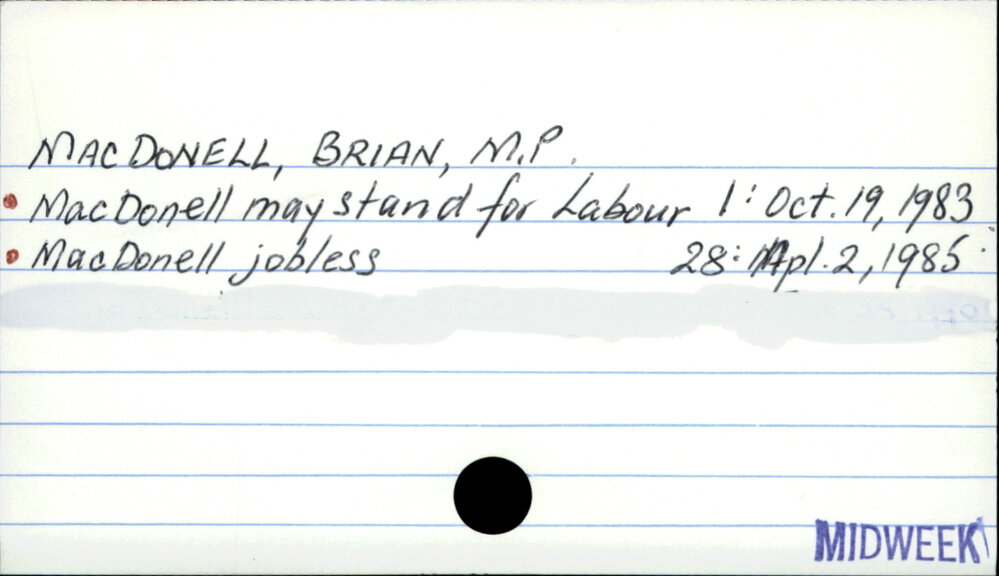 MACDONELL, BRIAN, M.P.
MacDonell may stand for Labour 1: Oct. 19, 1983
MacDonell jobless 28: Apl. 2, 1985
MIDWEEK